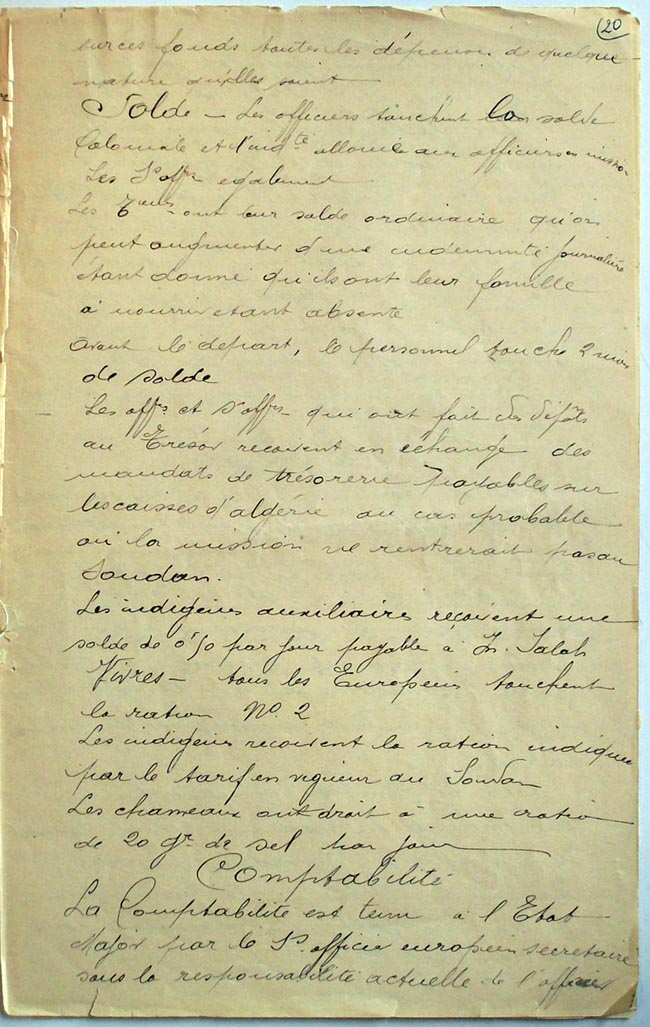 20
sur ces fonds toutes les dépenses de quelque
nature qu'elles soient
Solde — Les officiers touchent la solde
Coloniale et l'ind.té allouée aux officiers en mission
Les S/offrs également
Les Tirailleurs ont leur solde ordinaire qu'on
peut augmenter d'une indemnité journalière
étant donné qu'ils ont leur famille
à nourrir étant absents
avant le départ, le personnel touche 2 mois
de solde
Les offrs et S/offrs qui ont fait des dépôts
au Trésor reçoivent en échange des
mandats de trésorerie payables sur
les caisses d'algérie au cas probable
où la mission ne rentrerait pas au
Soudan.
Les indigènes auxiliaires reçoivent une
solde de 0f50 par jour payable à In. Salah
Vivres — tous les Européens touchent
la ration No. 2
Les indigènes reçoivent la ration indiquée
par le tarif en vigueur au Soudan
Les chameaux ont droit à une ration
de 20 gr de sel par jour
Comptabilité
La Comptabilité est tenu à l'Etat
Major par le S/officier européen secrétaire
sous la responsabilité actuelle de l'officier